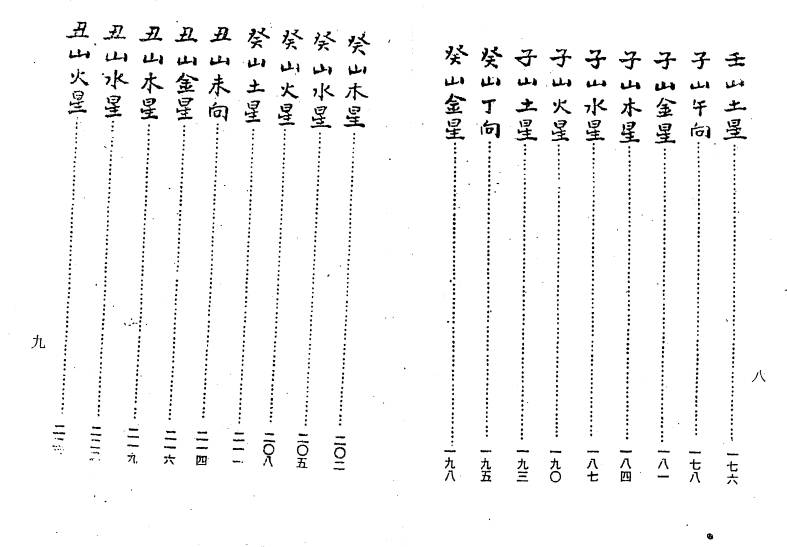 壬山土星 一七六
子山午向 一七八
子山金星 一八一
子山木星 一八四
子山水星 一八七
子山火星 一九〇
子山土星 一九三
癸山丁向 一九五
癸山金星 一九八
八
癸山木星 二〇二
癸山水星 二〇五
癸山火星 二〇八
癸山土星 二一一
丑山未向 二一四
丑山金星 二一六
丑山木星 二一九
丑山水星
丑山火星
九